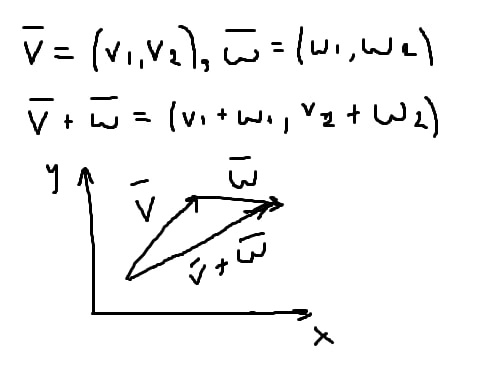 V̅ = (v₁, v₂), w̅ = (w₁, w₂)
V̅ + w̅ = (v₁ + w₁, v₂ + w₂)
y
V̅
w̅
v̅ + w̅
x